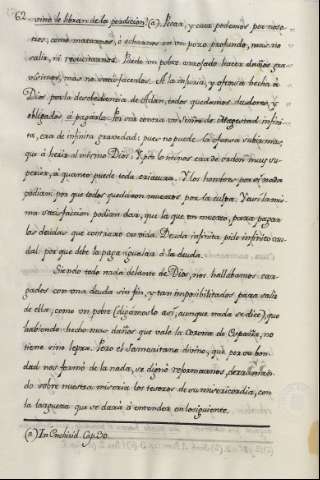 62
vino de librar de la perdicion. (a). Pecar, y caer podemos por noso-
tros; como matarnos, ó echarnos en un pozo profundo, mas no
salir, ni resucitarnos. Puede un pobre arrojado hacer daños gra-
visimos, mas no satisfacerlos. A la injuria, y ofensa hecha á
Dios por la desobediencia de Adan, todos quedamos deudores, y
obligados á pagarla. Por via contra un Señor de Magestad infini-
ta, era de infinita gravedad: pues no puede la ofensa subir mas,
que á herir al mismo Dios. Y por lo menos era de orden muy su-
perior, á quanto puede toda criatura. Y los hombres por sí nada
podian: por que todos quedaron muertos por la culpa. Y assi la mis-
ma satisfaccion podian dar, que la que un muerto, para pagar
las deudas que contraxo en vida. Deuda infinita, pide infinito cau-
dal: por que debe la paga igualar á la deuda.
Siendo todo nada delante de Dios, nos hallabamos car-
gados con una deuda sin fin, y tan imposibilitados para salir
de ella; como un pobre (digamoslo así, aunque nada se dice) que
habiendo hecho mas daños que vale la Corona de España, no
tiene sino lepra. Pero el Samaritano divino, que por su bon-
dad nos formó de la nada, se dignó reformarnos, derraman-
do sobre nuestra miseria los tesoros de su misericordia, con
la largueza que se dará á entender en lo siguiente.
(a) In Enchirid. Cap. 30.